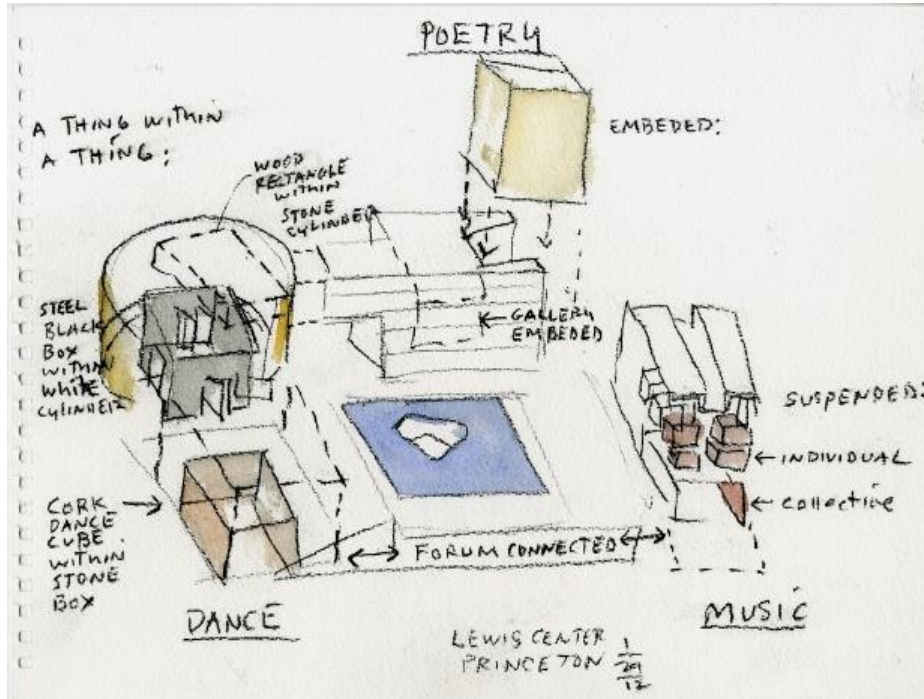 POETRY
A THING WITHIN
A THING:
EMBEDED:
WOOD
RECTANGLE
WITHIN
STONE
CYLINDER
STEEL
BLACK
BOX
WITHIN
WHITE
CYLINDER
GALLERY
EMBEDED
SUSPENDED:
INDIVIDUAL
COLLECTIVE
CORK
DANCE
CUBE
WITHIN
STONE
BOX
FORUM CONNECTED
DANCE
MUSIC
LEWIS CENTER
PRINCETON 1
29
12